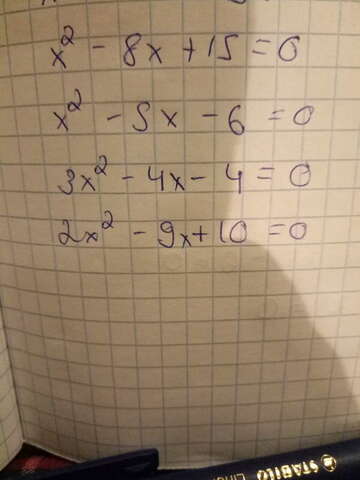 x² - 8x + 15 = 0
x² - 5x - 6 = 0
3x² - 4x - 4 = 0
2x² - 9x + 10 = 0
STABILO